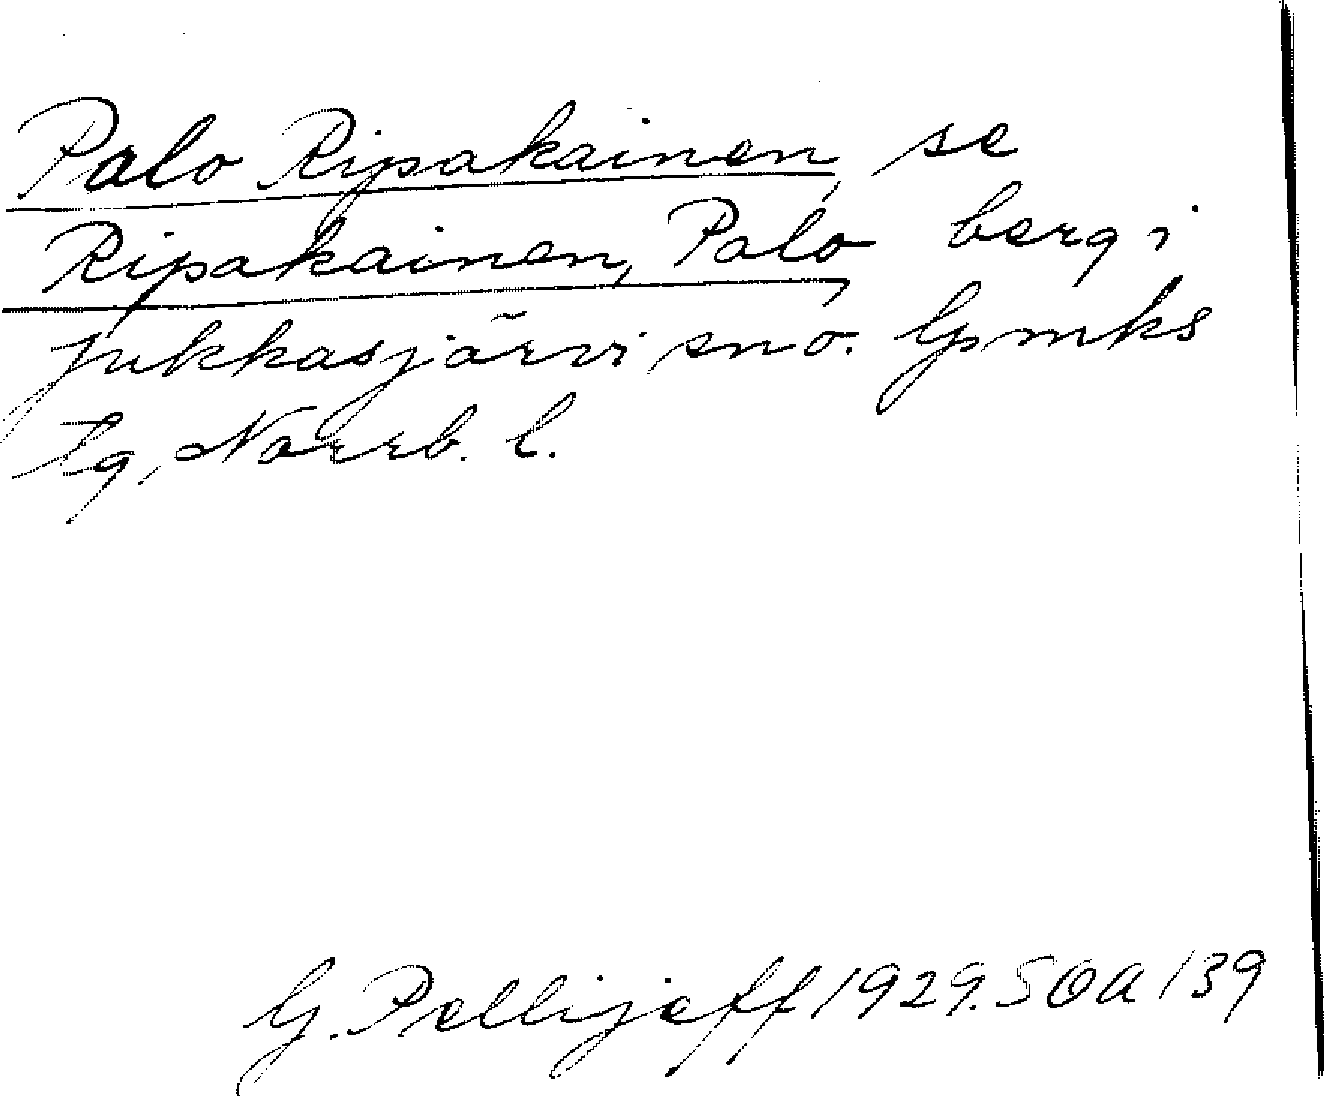 Palo Ripakainen, se
Ripakainen, Palo, berg i
Jukkasjärvi sn o. Gmks
lg, Norrb. l.
G. Pellijeff 1929. SOA 139